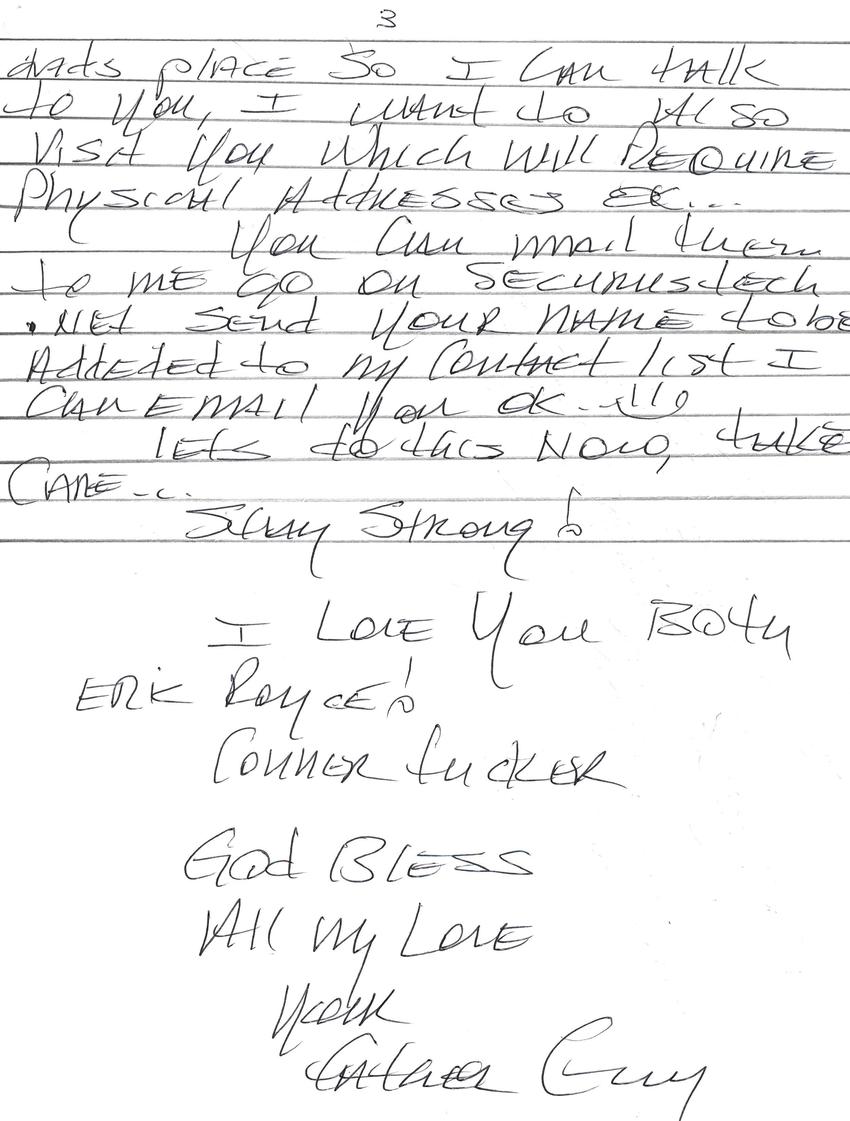 3
dads place So I Can talk
to you, I want to Also
Visit you which will REQUIRE
Physical AddRESSES Etc...
You Can mail them
to mE go on Securustech
.NEt Send YOUR NAME to be
Addeded to my Contact list I
Can EMAIL you OK...
lets do this Now, take
CARE...
Stay Strong!
I LovE You Both
ERIK RoycE!
ConnER tuckER
God BlESS
All my LovE
Your
father Guy